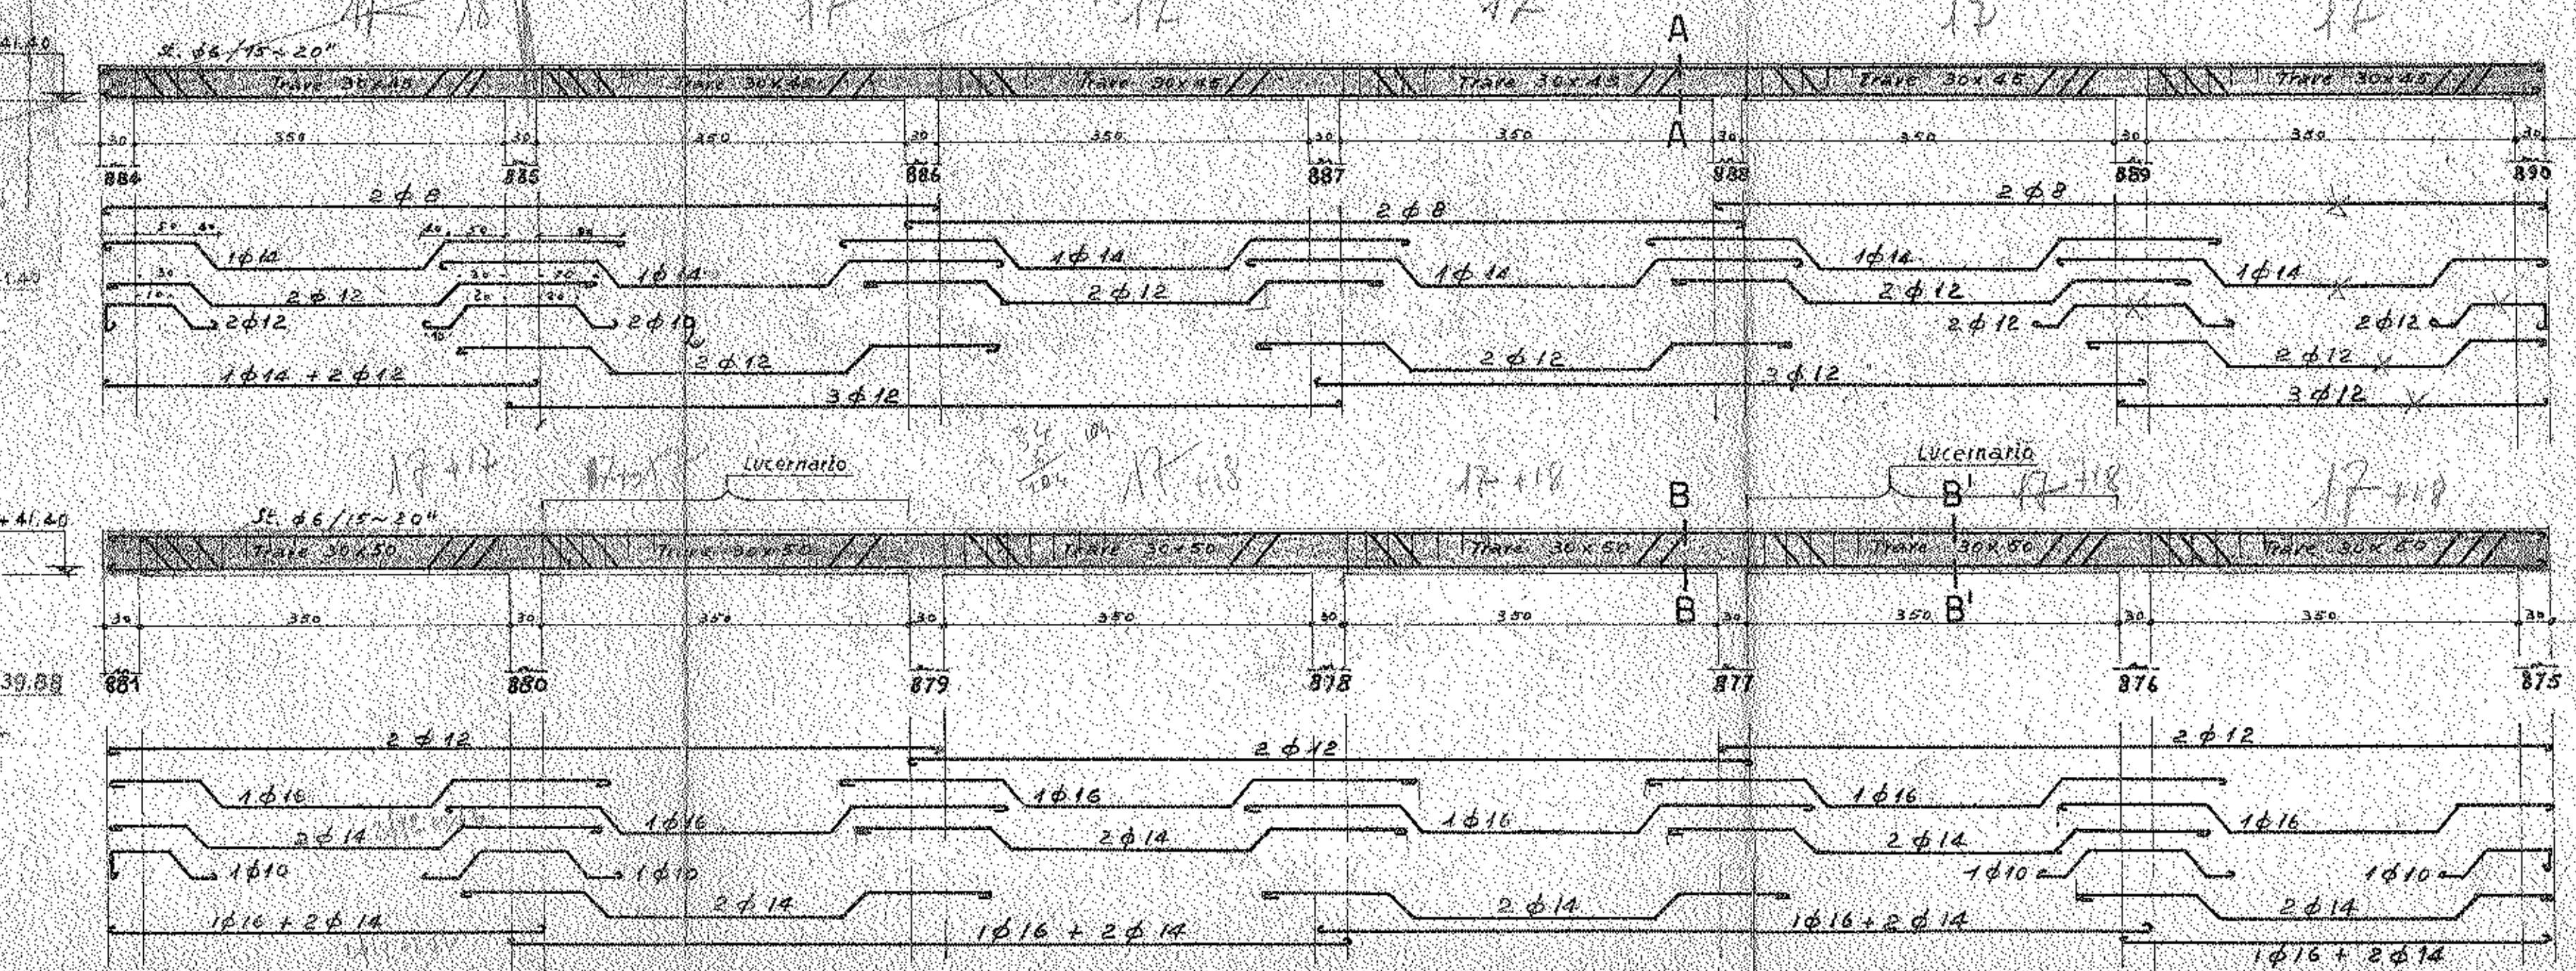 17 18 17 17 17 17 17
A
41.40
St. ϕ6/15~20"
Trave 30x45 Trave 30x45 Trave 30x45 Trave 30x45 Trave 30x45 Trave 30x45
A
30 350 30 350 30 350 30 350 30 350 30 350 30
884 885 886 887 888 889 890
2ϕ8 2ϕ8 2ϕ8
50 40 40 50
1ϕ14 1ϕ14 1ϕ14 1ϕ14 1ϕ14 1ϕ14
2ϕ12 2ϕ12 2ϕ12
2ϕ12 2ϕ12 2ϕ12
2ϕ12 2ϕ12 2ϕ12
1ϕ14 + 2ϕ12 3ϕ12 3ϕ12 3ϕ12
Lucernario Lucernario
17+17 17+18 17+18 17+18 17+18
B B'
+41.40
St. ϕ6/15~20"
Trave 30x50 Trave 30x50 Trave 30x50 Trave 30x50 Trave 30x50 Trave 30x50
B B'
30 350 30 350 30 350 30 350 30 350 30 350 30
39.88
881 880 879 878 877 876 875
2ϕ12 2ϕ12 2ϕ12
1ϕ16 1ϕ16 1ϕ16 1ϕ16 1ϕ16 1ϕ16
2ϕ14 2ϕ14 2ϕ14
1ϕ10 1ϕ10 1ϕ10 1ϕ10
2ϕ14 2ϕ14 2ϕ14
1ϕ16 + 2ϕ14 1ϕ16 + 2ϕ14 1ϕ16+2ϕ14 1ϕ16 + 2ϕ14